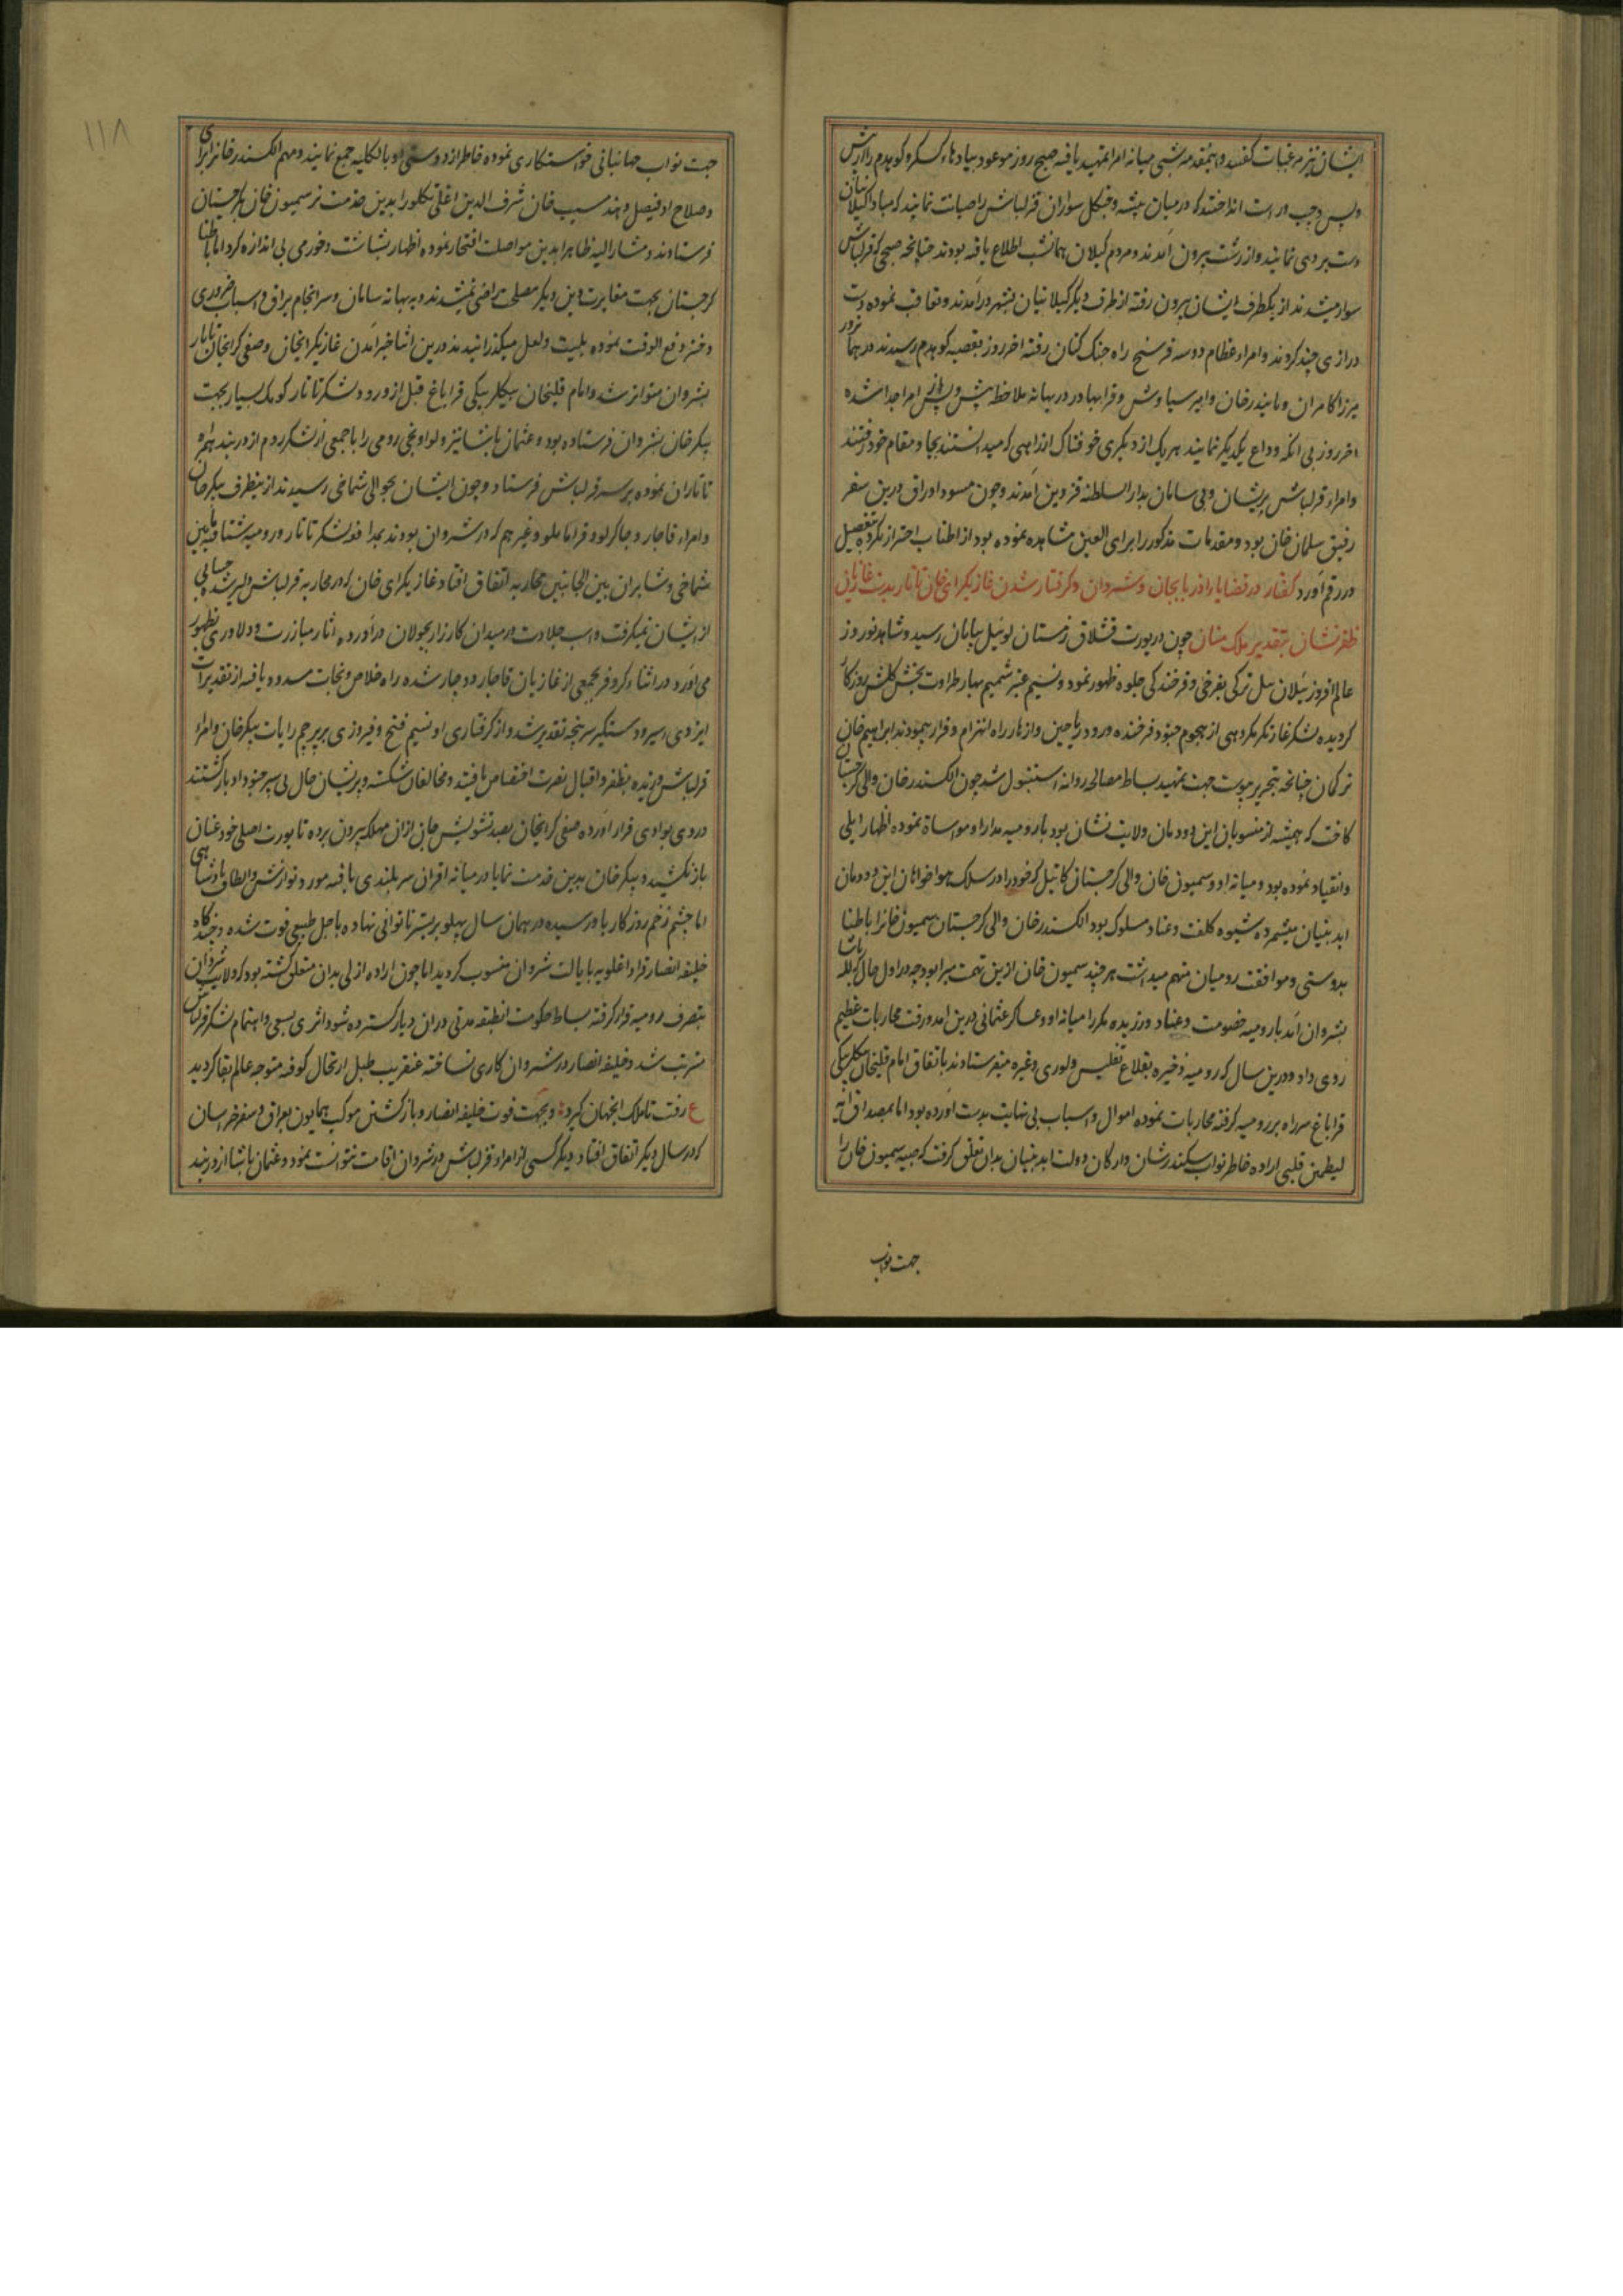 ایشان نیز مرغبات گفتند و اینمقدمه شبی میانه امرا تمهید یافته صبح روز موعود پیادهاء کسکر و کوهدم را از پیش
و پس و چپ و راست انداختند که در میان بیشه و جنگل سواران قزلباش را صیانت نمایند که مبادا گیلانیان
دست بردی نمایند و از رشت بیرون آمدند و مردم گیلان همانشب اطلاع یافته بودند چنانچه صبحی که قزلباش
سوار میشدند از یکطرف ایشان بیرون رفته از طرف دیگر گیلانیان بشهر درآمدند و تعاقب نموده دست
درازی چند کردند و امراء عظام دو سه فرسخ راه جنگ کنان رفته اخر روز بقصبه کوهدم رسیدند در همانروز
میرزا کامران و ماسدرخان و امیر سیاوش و قرابهادر در میانه ملاحظه پیش و پس از امرا جدا شده
اخر روز بی انکه وداع یکدیگر نمایند هر یک از دیگری خوفناک از راهی که میدانستند بجا و مقام خود رفتند
و امراء قزلباش پریشان و بی سامان بدار السلطنه قزوین آمدند و چون مسود اوراق درین سفر
رفیق سلمان خان بود و مقدمات مذکور را برای العین مشاهده نموده بود از اطناب احتراز نکرده بتفصیل
در رقم آورد گفتار در قضایاء اذربایجان و شروان و گرفتار شدن غازیگرای خان تاتار بدست غازیان
ظفر نشان بتقدیر ملک منان چون در یورت قشلاق زمستان لوی ئیل بپایان رسید و شاهد نوروز
عالم افروز ئیلان ئیل ترکی بفرخی و فرخندگی جلوه ظهور نمود و نسیم عنبر شمیم بهار طراوت بخش گلشن روزگار
گردیده لشکر غارتگر مکردهی از هجوم جنود فرخنده ورود ریاحین و ازهار راه انهزام و فرار پیمودند ابراهیم خان
ترکمان چنانچه بتحریر پیوست جهت تمهید بساط مصالحه روانه استنبول شد چون الکسندر خان والی گرجستان
کاخت که همیشه از منسوبان این دودمان ولایت نشان بود با رومیه مدارا و مواساة نموده اظهار ایلی
و انقیاد نموده بود و میانه او و سمیون خان والی گرجستان کارتیل که خود را در سلک هواخواهان این دودمان
ابد بنیان میشمرده شیوه کلفت و عناد مسلوک بود الکسندر خان والی گرجستان سمیون خانرا باطنا
بدوستی و موافقت رومیان متهم میداشت هر چند سمیون خان ازین تهمت مبرا بود چه در اول حال که لله پاشا
بشروان آمد با رومیه خصومت و عناد ورزیده مکررا میانه او و عساکر عثمانی درین امد و رفت محاربات عظیم
روی داد و درین سال که رومیه ذخیره بقلاع تفلیس و لوری و غیره میفرستادند باتفاق امام قلیخان بیگلربیگی
قراباغ سر راه بر رومیه گرفته محاربات نموده اموال و اسباب بی نهایت بدست آورده بود اما بمصداق آیه
لیطمئن قلبی اراده خاطر نواب سکندر شان و ارکان دولت ابد بنیان بدان تعلق گرفت که صبیه سمیون خان را
جهت نواب
١١٨
جهت نواب جهانبانی خواستکاری نموده خاطر از دوستی او بالکلیه جمع نمایند و مهم الکسندر خانرا برای
و صلاح او فیصل دهند سبب خان شرف الدین اغلی تکلو را بدین خدمت نزد سمیون خان بگرجستان
فرستادند و مشار الیه ظاهرا بدین مواصلت افتخار نموده اظهار بشاشت و خورمی بی اندازه کرد اما باطنا
گرجستان بجهت مغایرت دین و دیگر مصلحت راضی نمیشدند و به بهانه سامان و سرانجام یراق و اسباب ضروری
دختر دفع الوقت نموده بلیت و لعل میگذرانیدند درین اثنا خبر آمدن غازیگرایخان و صفی گرایخان تاتار
بشروان متواتر شد و امام قلیخان بیگلربیگی قراباغ قبل از ورود لشکر تاتار کومک بسیار بجهت
پیکر خان بشروان فرستاده بود و عثمان پاشا نیز ولوا ونجی رومی را با جمعی از لشکر روم از دربند همراه
تاتاران نموده بر سر قزلباش فرستاد و چون ایشان بحوالی شماخی رسیدند ازینطرف پیکر خان
و امراء قاجار و چاکرلو و قرامانلو و غیرهم که در شروان بودند بمدافعه لشکر تاتار و رومیه شتافته مابین
شماخی و شابران بین الجانبین محاربه اتفاق افتاد غازیگرای خان که در محاربه قزلباش دلیر شده حسابی
از ایشان نمیگرفت و اسب جلادت در میدان کارزار بجولان درآورده اثار مبارزت و دلاوری بظهور
می آورد در اثناء کر و فر بجمعی از غازیان قاجار دوچار شده راه خلاص و نجات مسدود یافته از تقدیرات
ایزدی اسیر و دستگیر سرپنجه تقدیر شد و از گرفتاری او نسیم فتح و فیروزی بر پرچم رایات پیکر خان و امراء
قزلباش وزیده بظفر و اقبال نصرت اختصاص یافتند و مخالفان شکسته و پریشان حال بی سپر جنود ادبار گشتند
و روی بوادی فرار آورده صفی گرایخان بصد تشویش جان از ان مهلکه بیرون برده تا یورت اصلی خود عنان
باز نکشید و پیکر خان بدین خدمت نمایان در میانه اقران سربلندی یافته مورد نوازش و الطاف پادشاهی
اما چشم زخم روزگار باو رسیده در همان سال پهلو بر بستر ناتوانی نهاده باجل طبیعی فوت شده و چند گاه
خلیفه انصار قراداغلو به ایالت شروان منسوب گردید اما چون اراده ازلی بدان متعلق گشته بود که ولایت شروان
بتصرف رومیه قرار گرفته بساط حکومت انطبقه مدتی در ان دیار گسترده شود اثری بسعی و اهتمام لشکر قزلباش
مترتب نشد و خلیفه انصار در شروان کاری نساخته عنقریب طبل ارتحال کوفته متوجه عالم بقا گردید
ع رفت تا ملک انجهان گیرد و بجهت فوت خلیفه انصار و باز گشتن موکب همایون بعراق و سفر خراسان
که در سال دیگر اتفاق افتاد دیگر کسی از امراء قزلباش در شروان اقامت نتوانست نمود و عثمان پاشا از دربند